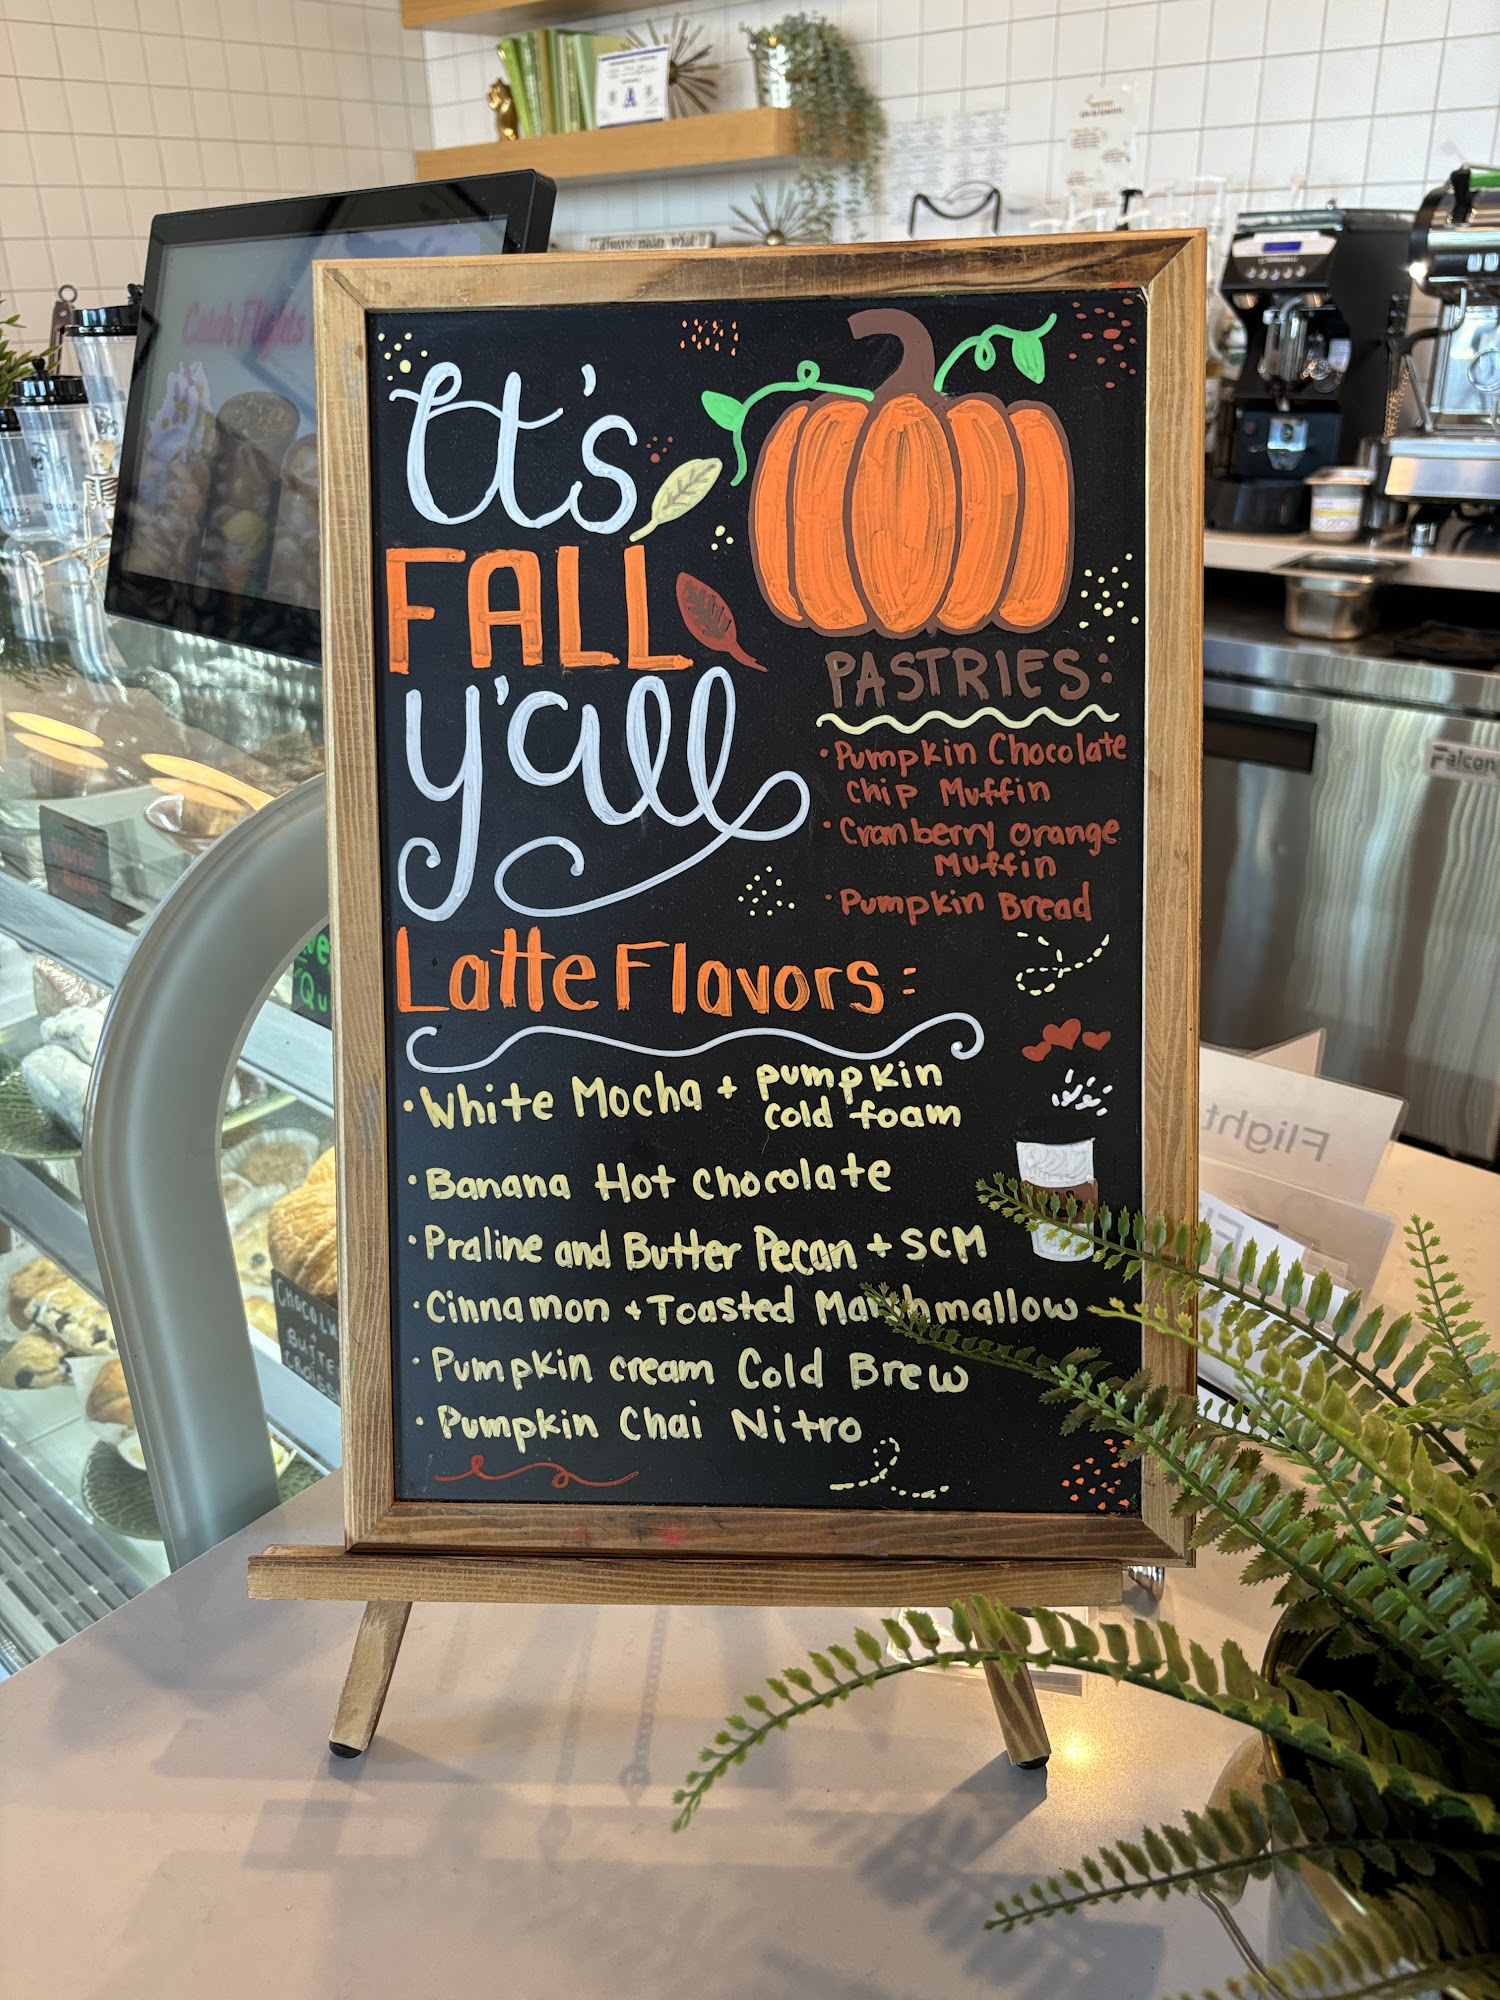 It's
FALL
y'all
PASTRIES:
• Pumpkin Chocolate
chip Muffin
• Cranberry orange
Muffin
• Pumpkin Bread
Latte Flavors:
• White Mocha + pumpkin
cold foam
• Banana Hot chocolate
• Praline and Butter Pecan + SCM
• Cinnamon + Toasted Marshmallow
• Pumpkin cream Cold Brew
• Pumpkin Chai Nitro
Catch Flights
Falcon
Flight